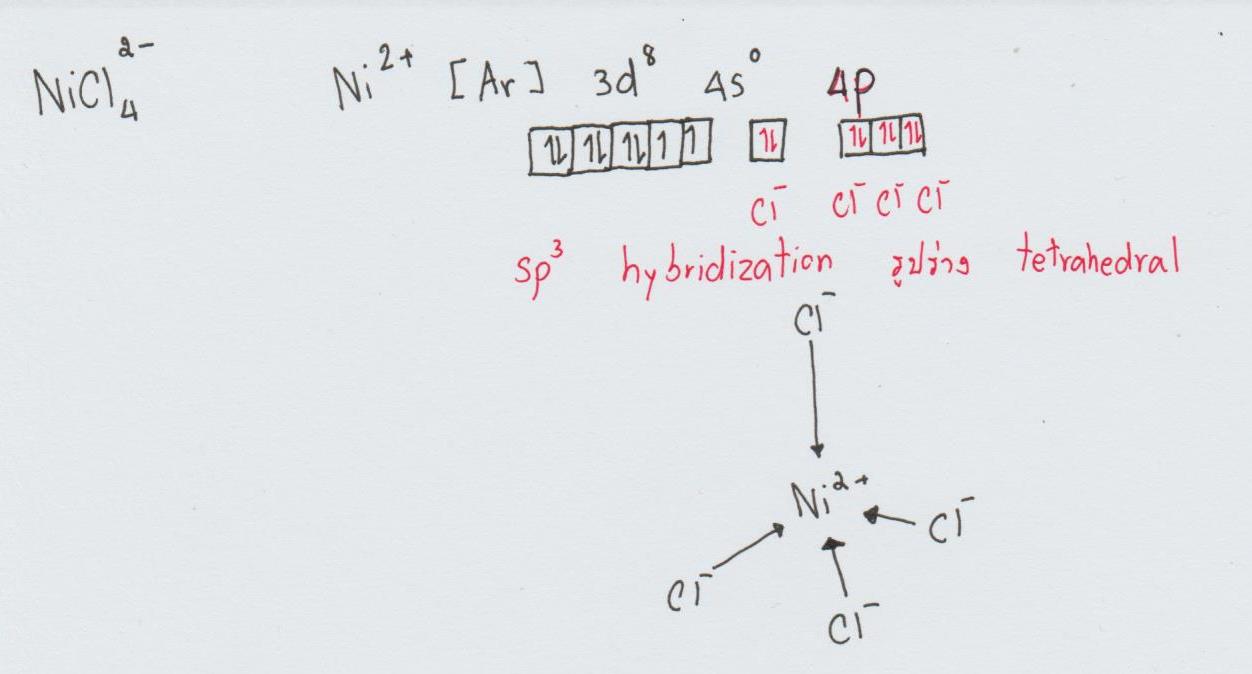 NiCl₄²⁻ Ni²⁺ [Ar] 3d⁸ 4s⁰ 4p
⥮ ⥮ ⥮ ↿ ↿ ⥮ ⥮ ⥮ ⥮
Cl⁻ Cl⁻ Cl⁻ Cl⁻
sp³ hybridization รูปร่าง tetrahedral
Cl⁻
Ni²⁺
Cl⁻
Cl⁻
Cl⁻